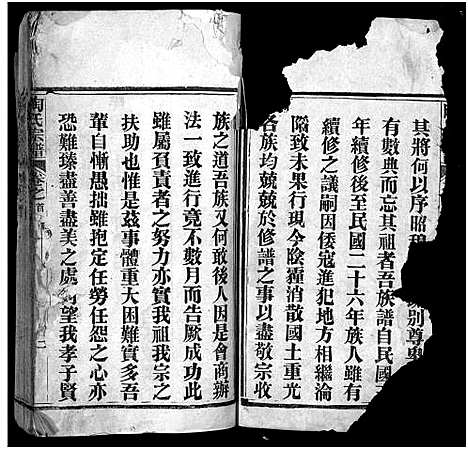 其將何以序昭穆
別尊卑
有數典而忘其祖者吾族譜自民國
年續修後至民國二十六年族人雖有
續修之議嗣因倭寇進犯地方相繼淪
陷致未果行現今陰霾消散國土重光
各族均兢兢於修譜之事以盡敬宗收
族之道吾族又何敢後人因是會商辦
法一致進行竟不數月而告厥成功此
雖屬負責者之努力亦實我祖我宗之
扶助也惟是茲事體重大困難實多吾
輩自慚愚拙雖抱定任勞任怨之心亦
恐難臻盡善盡美之處
望我孝子賢
陶氏宗譜
卷之首
二